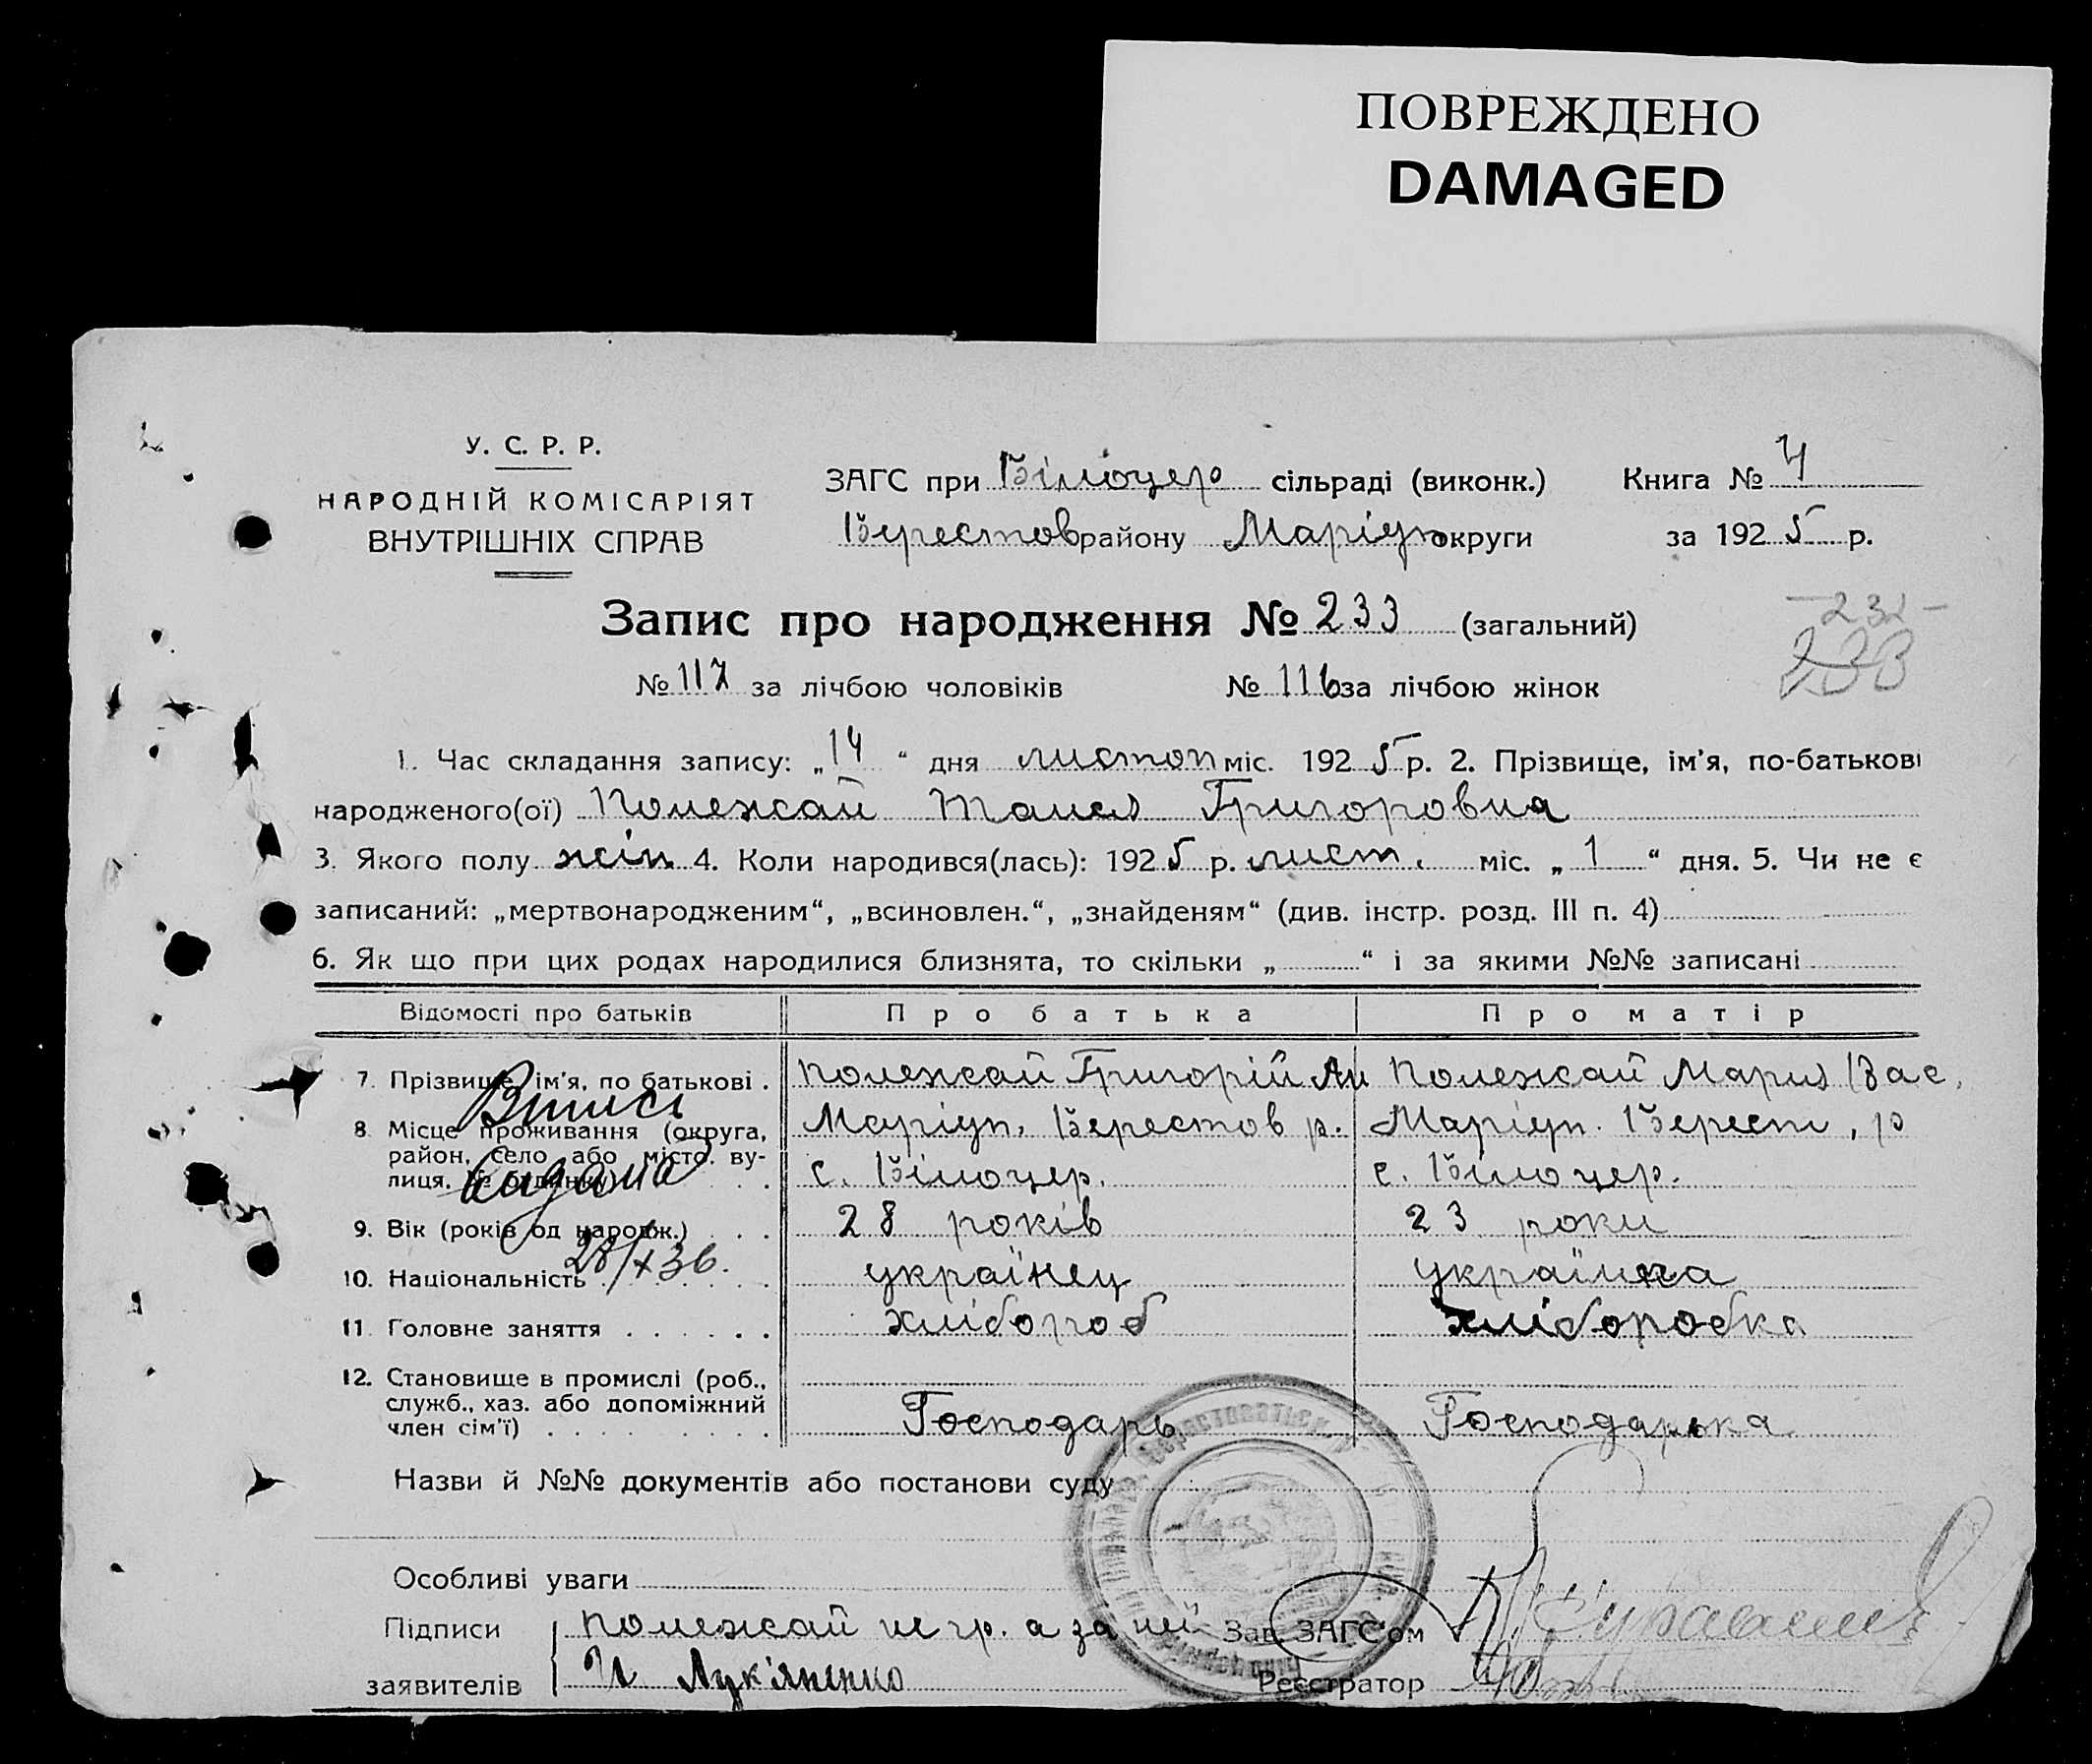 ПОВРЕЖДЕНО
DAMAGED
У. С. Р. Р.
НАРОДНІЙ КОМІСАРІЯТ
ВНУТРІШНІХ СПРАВ
ЗАГС при Білоцер сільраді (виконк.)
Берестов району Маріуп округи
Книга № 4
за 1925 р.
Запис про народження № 233 (загальний)
№ 117 за лічбою чоловіків № 116 за лічбою жінок
232
233
1. Час складання запису: „14“ дня листоп міс. 1925 р. 2. Прізвище, ім'я, по-батькові
народженого(ої) Полежай Таися Григоровна
3. Якого полу жін 4. Коли народився(лась): 1925 р. лист. міс. „1“ дня. 5. Чи не є
записаний: „мертвонародженим“, „всиновлен.“, „знайденям“ (див. інстр. розд. III п. 4)
6. Як що при цих родах народилися близнята, то скільки „ “ і за якими №№ записані
Відомості про батьків Про батька Про матір
7. Прізвище, ім'я, по батькові . Полежай Григорій Ан Полежай Мария Вас.
8. Місце проживання (округа, Маріуп. Берестов р. Маріуп. Берест, р
район, село або місто, ву-
лиця, № будинку) с. Білоцер. с. Білоцер.
9. Вік (років од народж.) . . 28 років 23 роки
10. Національність українец українка
11. Головне заняття хлібороб хліборобка
12. Становище в промислі (роб.,
служб., хаз. або допоміжний
член сім'ї) Господарь Господарька
Випись
видана
28/X 36.
Назви й №№ документів або постанови суду
Особливі уваги
Підписи Полежай не гр. а за ней Зав. ЗАГС'ом
заявителів И Лук'яненко Реєстратор